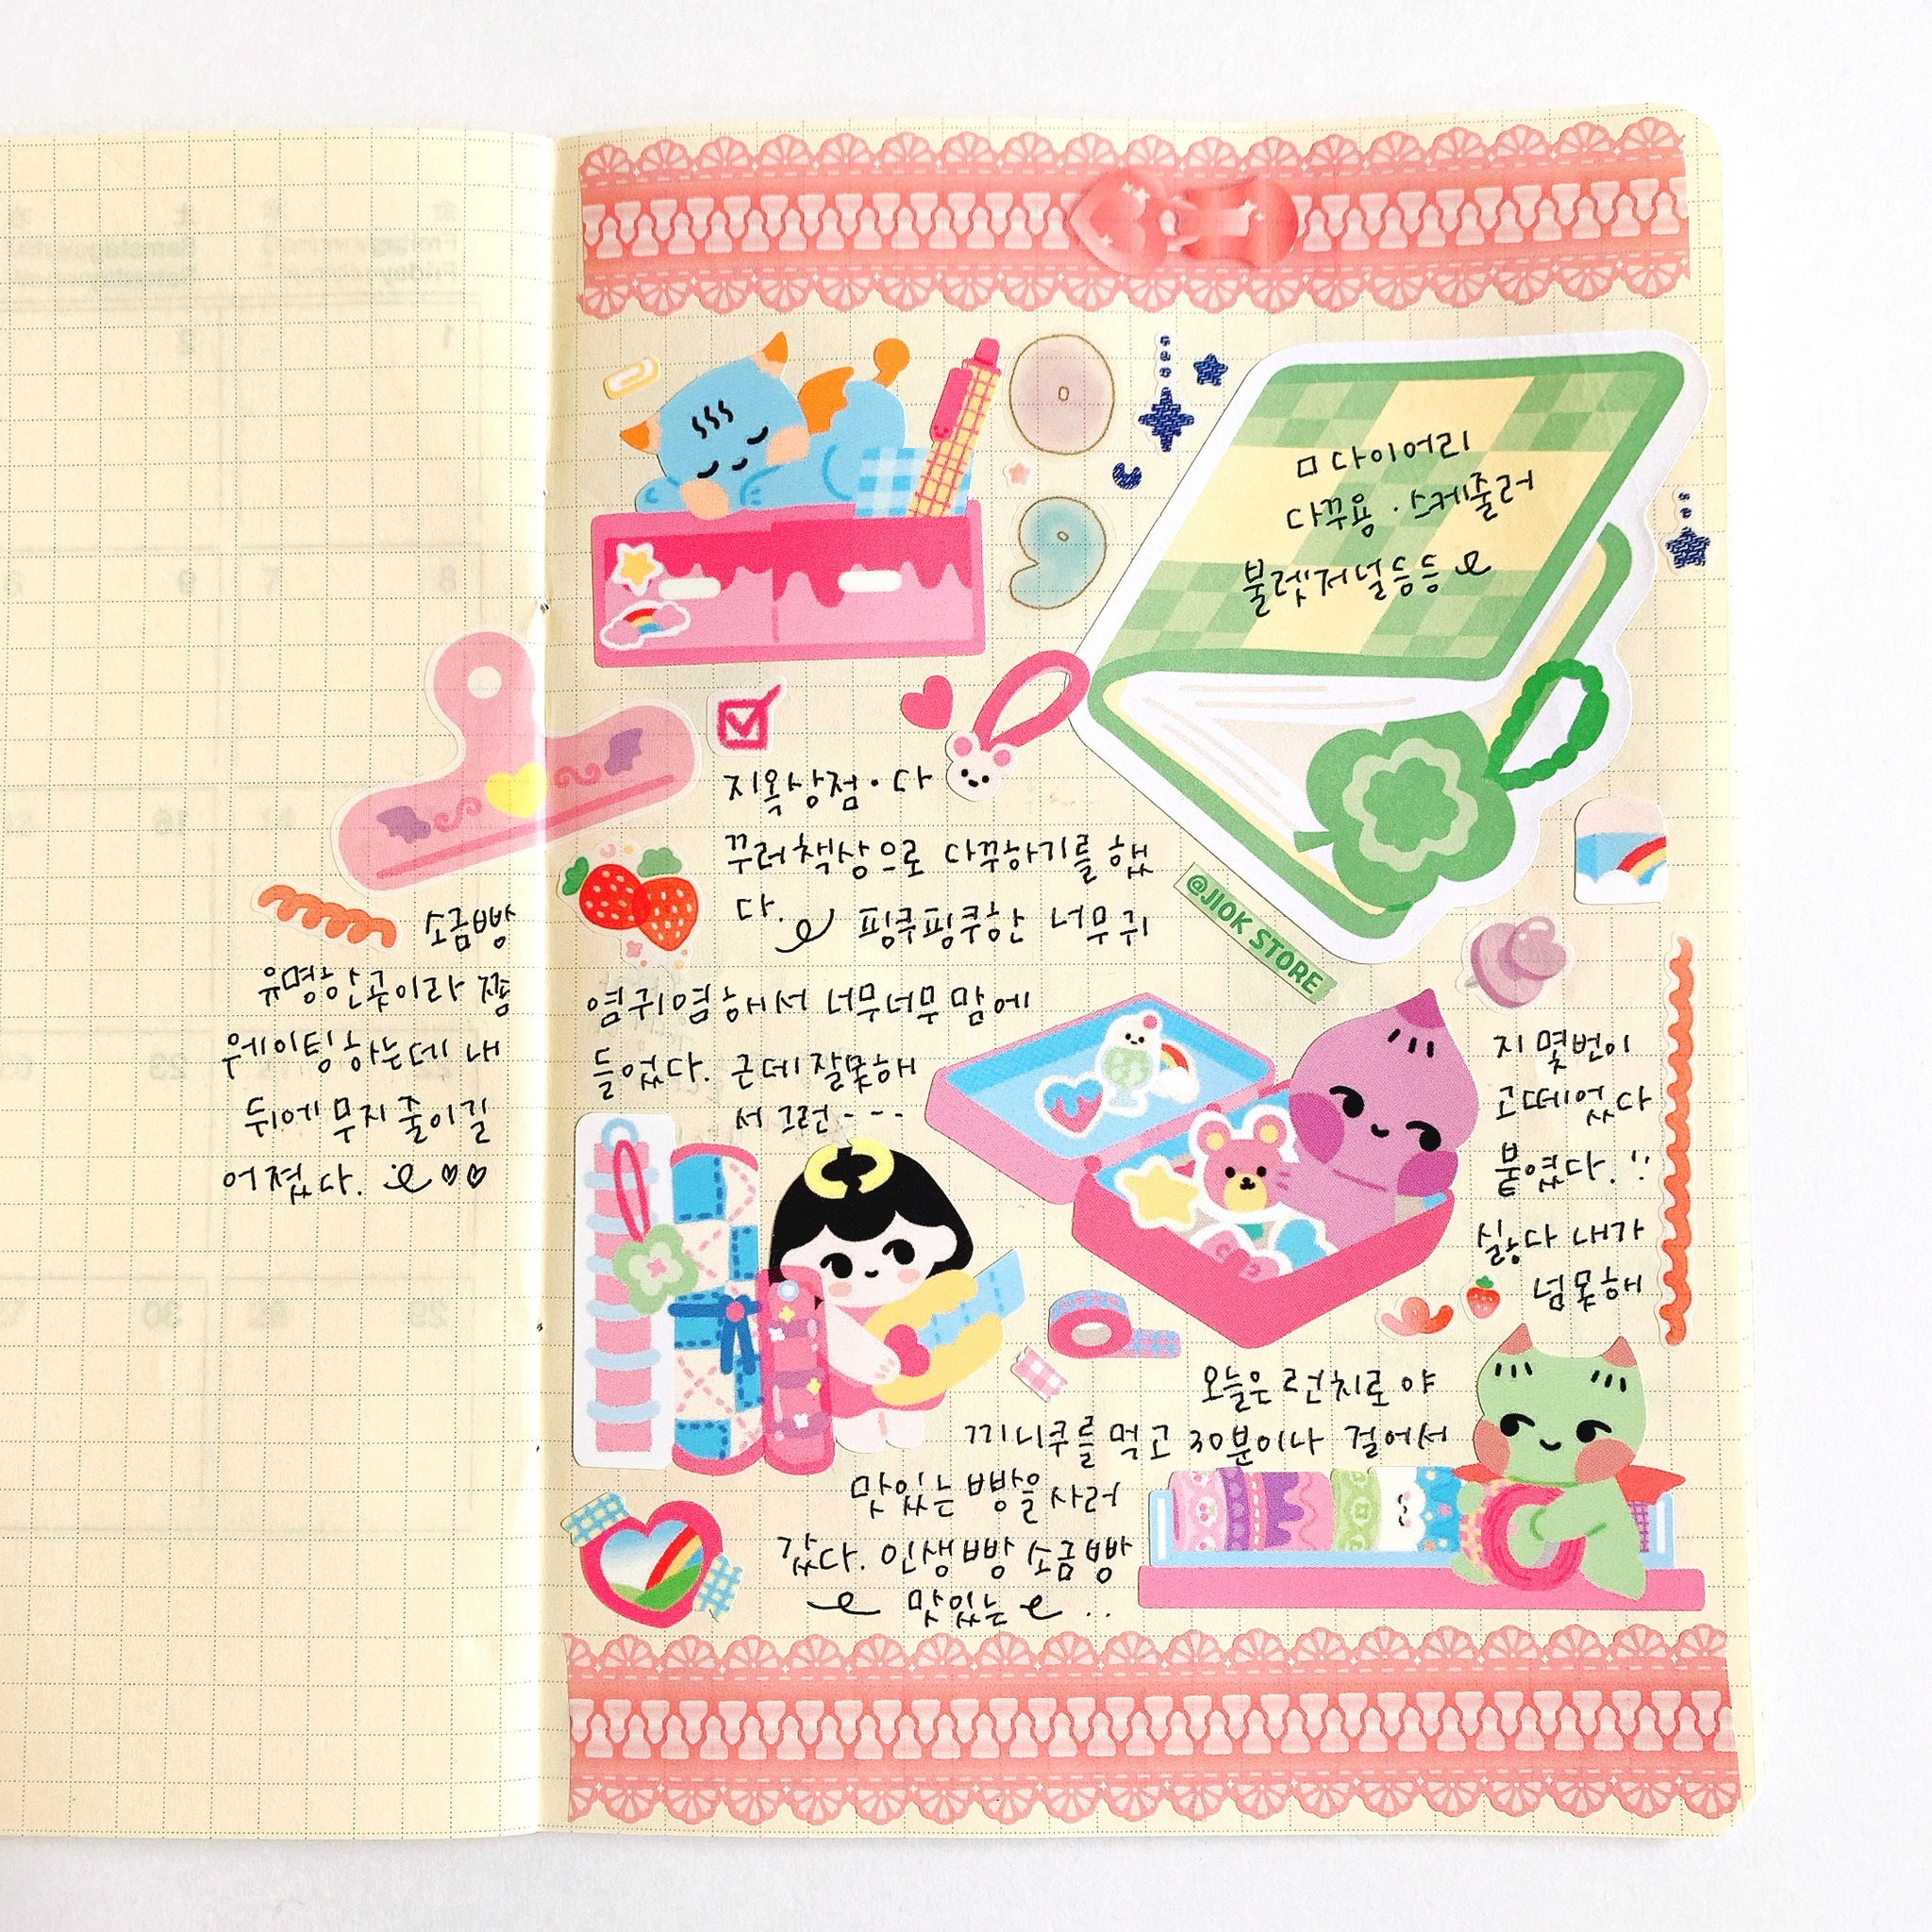 09
□ 다이어리
다꾸용 · 스케줄러
불렛저널등등
지옥상점 · 다
꾸러책상으로 다꾸하기를 했
다. 핑쿠핑쿠한 너무귀
염귀염해서 너무너무맘에
들었다. 근데 잘못해
서 그런---
@JIOK STORE
지 몇번이
고떼었다
붙였다. ..
싫다 내가
넘못해
오늘은 런치로 야
끼니쿠를 먹고 30분이나 걸어서
맛있는 빵을 사러
갔다. 인생빵 소금빵
맛있는 ..
소금빵
유명한곳이라 쫌
웨이팅하는데 내
뒤에 무지 줄이길
어졌다. ♡♡
土
Samstag
Saturday
金
Freitag
Friday
1
2
8
7
9
16
14
23
30
29